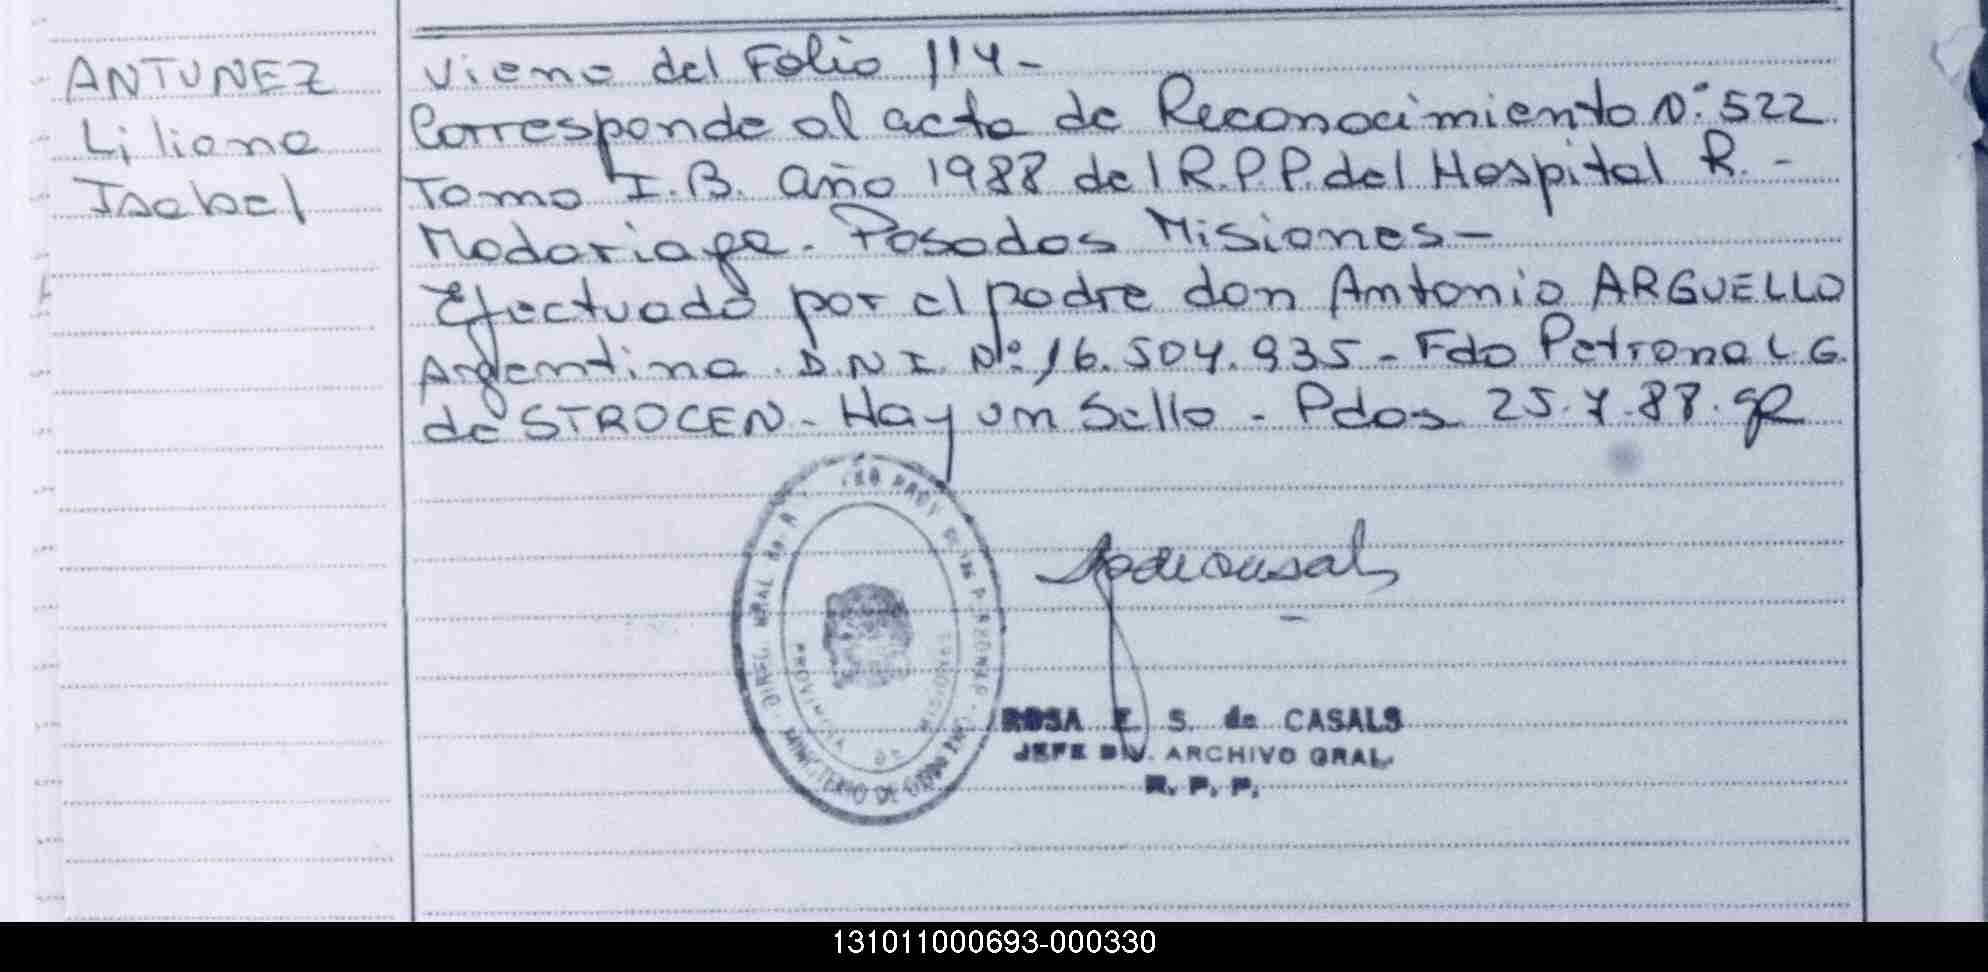 ANTUNEZ
Liliana
Isabel
Viene del Folio 114-
Corresponde al acta de Reconocimiento N°: 522
Tomo I.B. año 1988 del R.P.P. del Hospital R.-
Madariaga. Posadas Misiones-
Efectuado por el padre don Antonio ARGUELLO
Argentino. D.N.I. N°: 16.504.935- Fdo Petrona L.G.
de STROCEN- Hay un Sello- Pdas 25.7.88.
PROVINCIA DE MISIONES
MINISTERIO DE GOBIERNO
ROSA E. S. de CASALS
JEFE DIV. ARCHIVO GRAL.
R. P. P.
131011000693-000330